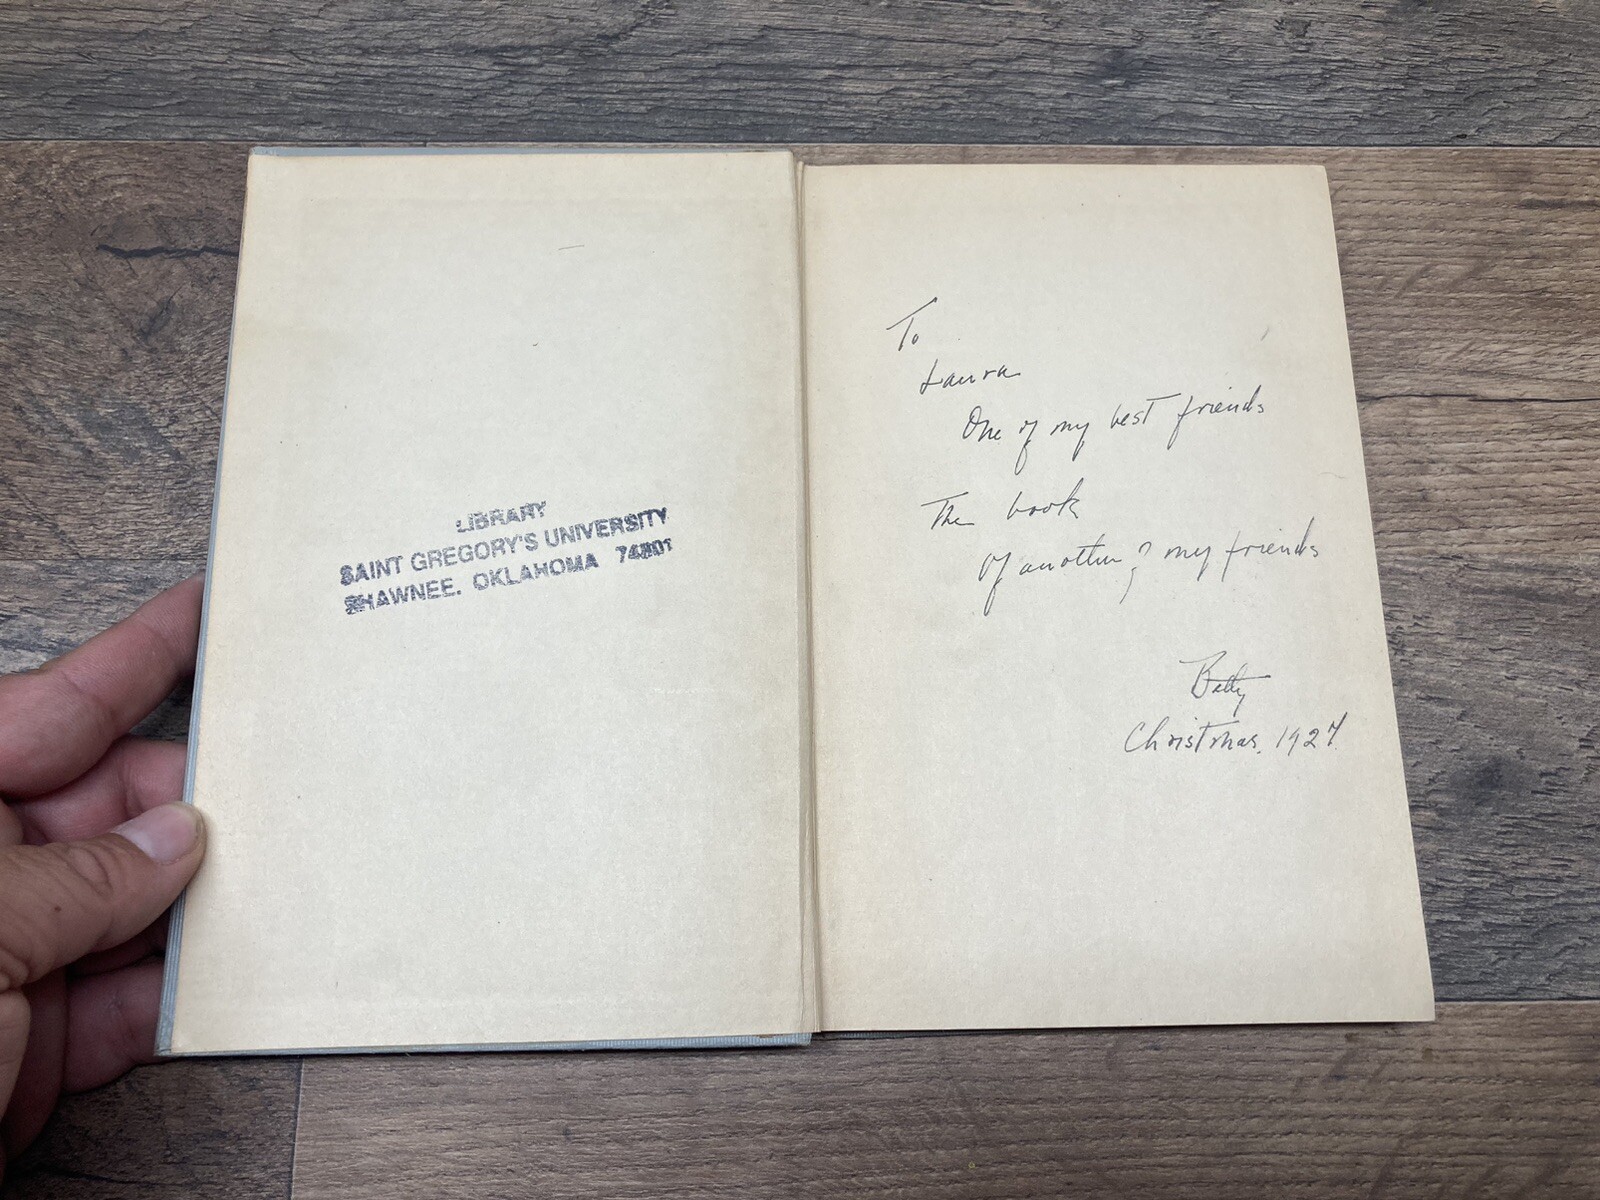 LIBRARY
SAINT GREGORY'S UNIVERSITY
SHAWNEE, OKLAHOMA 74801
To
Laura
One of my best friends
The book
Of another of my friends
Betty
Christmas, 1927